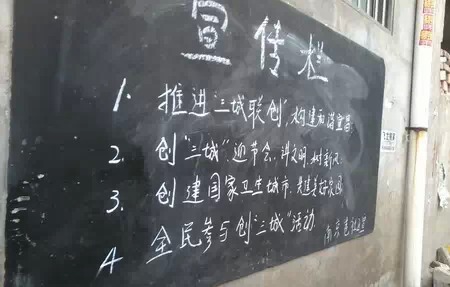 宣传栏
1. 推进"三城联创",构建和谐宜昌
2. 创"三城".迎节会.讲文明.树新风.
3. 创建国家卫生城市.共建美好家园
4 全民参与创"三城"活动.